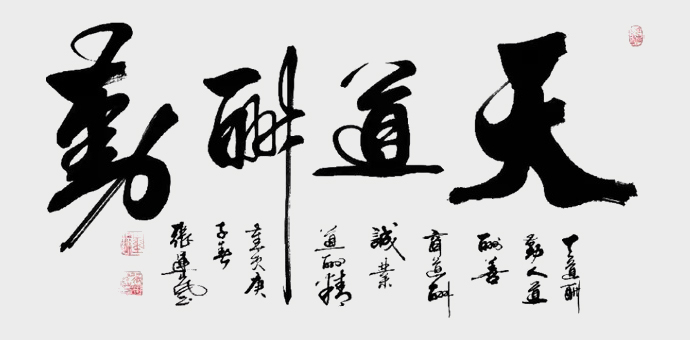 天道酬勤
天道酬
勤人道
酬善
商道酬
誠業
道酬精
歲次庚
子春
張